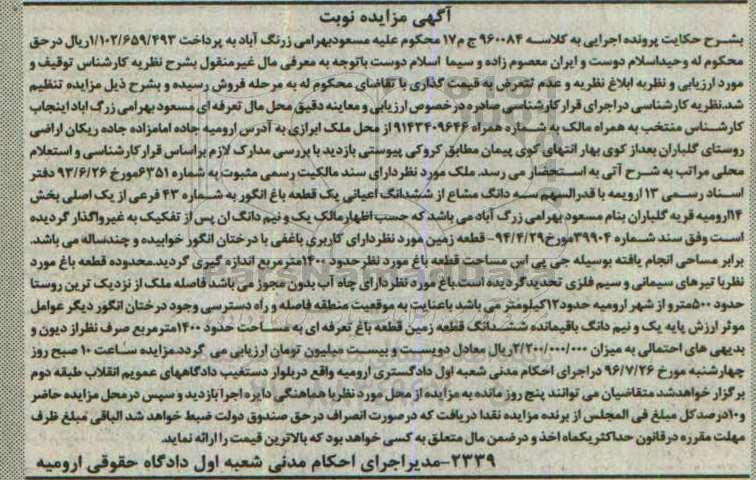 آگهی مزایده نوبت
بشـرح حکایت پرونده اجرایی به کلاسـه ۹۶۰۰۸۴ ج م۱۷ محکوم علیه مسعودبهرامی زرنگ آباد به پرداخت ۱/۱۰۲/۶۵۹/۴۹۳ریال درحق
محکوم له وحیداسلام دوست و ایران معصوم زاده و سیما اسلام دوست باتوجه به معرفی مال غیرمنقول بشرح نظریه کارشناس توقیف و
مورد ارزیابی و نظربه ابلاغ نظریه و عدم تعرض به قیمت گذاری با تقاضای محکوم له به مرحله فروش رسیده و بشرح ذیل مزایده تنظیم
شد.نظریه کارشناسی دراجرای قرارکارشناسی صادره درخصوص ارزیابی و معاینه دقیق محل مال تعرفه ای مسعود بهرامی زرگ اباد اینجاب
کارشـناس منتخب به همراه مالک به شـماره همراه ۹۱۴۳۴۰۹۶۴۶ از محل ملک ابرازی به آدرس ارومیه جاده امامزاده جاده ریکان اراضی
روستای گلباران بعداز کوی بهار انتهای کوی پیمان مطابق کروکی پیوستی بازدید با بررسی مدارک لازم براساس قرارکارشناسی و استعلام
محلی مراتب به شـرح آتی به اسـتحضار می رسد. ملک مورد نظردارای سند مالکیت رسمی مثبوت به شماره ۶۳۵۱مورخ ۹۳/۶/۲۶ دفتر
اسـناد رسـمی ۱۳ ارویمه با قدرالسهم سـه دانگ مشاع از ششدانگ اعیانی یک قطعه باغ انگور به شـماره ۴۳ فرعی از یک اصلی بخش
۱۴ارومیه قریه گلباران بنام مسعود بهرامی زرگ آباد می باشد که حسب اظهارمالک یک و نیم دانگ ان پس از تفکیک به غیرواگذار گردیده
اسـت وفق سند شـماره ۳۹۹۰۴مورخ۹۴/۴/۲۹- قطعه زمین مورد نظردارای کاربری باغفی با درختان انگور خوابیده و چندساله می باشد.
برابر مساحی انجام یافته بوسیله جی پی اس مساحت قطعه باغ مورد نظرحدود ۱۴۰۰مترمربع اندازه گیری گردید.محدوده قطعه باغ مورد
نظربا تیرهای سیمانی و سیم فلزی تحدیدگردیده است.باغ مورد نظردارای چاه آب بدون مجوز می باشد فاصله ملک از نزدیک ترین روستا
حدود ۵۰۰مترو از شهر ارومیه حدود۱۲کیلومتر می باشد باعنایت به موقعیت منطقه فاصله و راه دسترسی وجود درختان انگور دیگر عوامل
موثر ارزش پایه یک و نیم دانگ باقیمانده ششـدانگ قطعه زمین قطعه باغ تعرفه ای به مسـاحت حدود ۱۴۰۰مترمربع صرف نظراز دیون و
بدیهی های احتمالی به میزان ۲/۲۰۰/۰۰۰/۰۰۰ریال معادل دویسـت و بیسـت میلیون تومان ارزیابی می گردد.مزایده سـاعت ۱۰ صبح روز
چهارشنبه مورخ ۹۶/۷/۲۶ دراجرای احکام مدنی شعبه اول دادگستری ارومیه واقع دربلوار دستغیب دادگاههای عمویم انقلاب طبقه دوم
برگزار خواهدشد متقاضیان می توانند پنج روز مانده به مزایده از محل مورد نظربا هماهنگی دایره اجرا بازدید و سپس درمحل مزایده حاضر
و۱۰درصدکل مبلغ فی المجلس از برنده مزایده نقدا دریافت که درصورت انصراف درحق صندوق دولت ضبط خواهد شد الباقی مبلغ ظرف
مهلت مقرره درقانون حداکثریکماه اخذ و درضمن مال متعلق به کسی خواهد بود که بالاترین قیمت را ارائه نماید.
۲۳۳۹-مدیراجرای احکام مدنی شعبه اول دادگاه حقوقی ارومیه